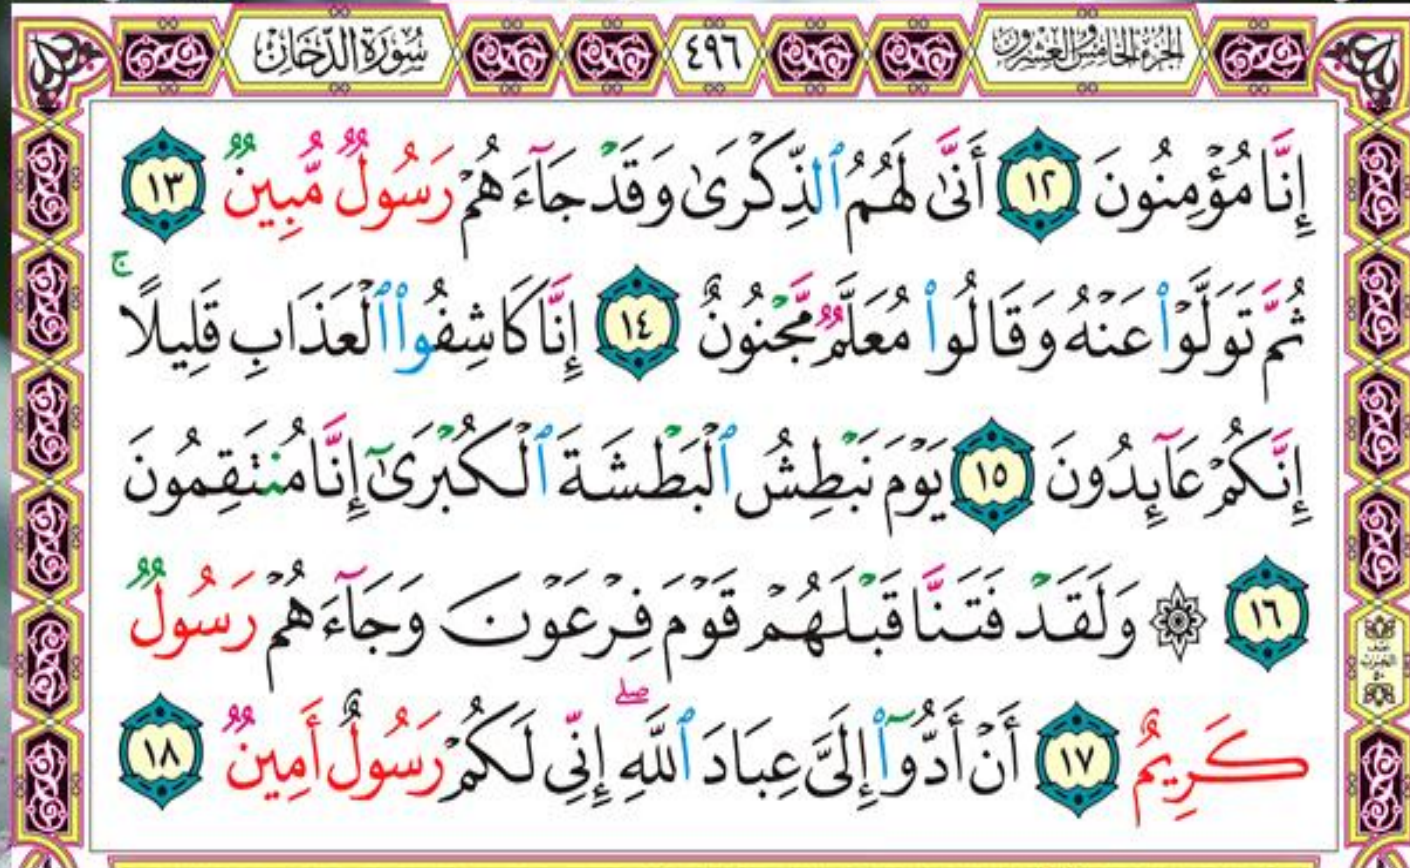 سُورَةُ الدُّخَانِ ٤٩٦ الجُزْءُ الخَامِسُ وَالعِشْرُونَ
إِنَّا مُؤْمِنُونَ ١٢ أَنَّىٰ لَهُمُ ٱلذِّكْرَىٰ وَقَدْ جَآءَهُمْ رَسُولٌ مُّبِينٌ ١٣
ثُمَّ تَوَلَّوْا۟ عَنْهُ وَقَالُوا۟ مُعَلَّمٌ مَّجْنُونٌ ١٤ إِنَّا كَاشِفُوا۟ ٱلْعَذَابِ قَلِيلًا ۚ
إِنَّكُمْ عَآئِدُونَ ١٥ يَوْمَ نَبْطِشُ ٱلْبَطْشَةَ ٱلْكُبْرَىٰٓ إِنَّا مُنتَقِمُونَ
١٦ ۞ وَلَقَدْ فَتَنَّا قَبْلَهُمْ قَوْمَ فِرْعَوْنَ وَجَآءَهُمْ رَسُولٌ
كَرِيمٌ ١٧ أَنْ أَدُّوٓا۟ إِلَىَّ عِبَادَ ٱللَّهِ ۖ إِنِّى لَكُمْ رَسُولٌ أَمِينٌ ١٨